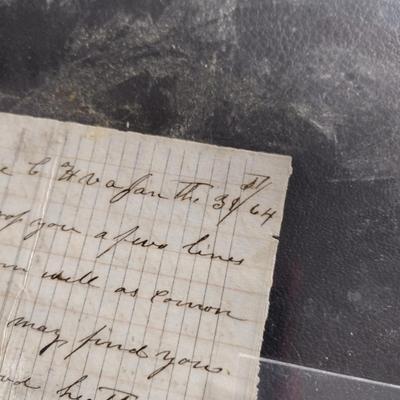 C H va Jan the 31st/64
you a few lines
well as comon
may find you